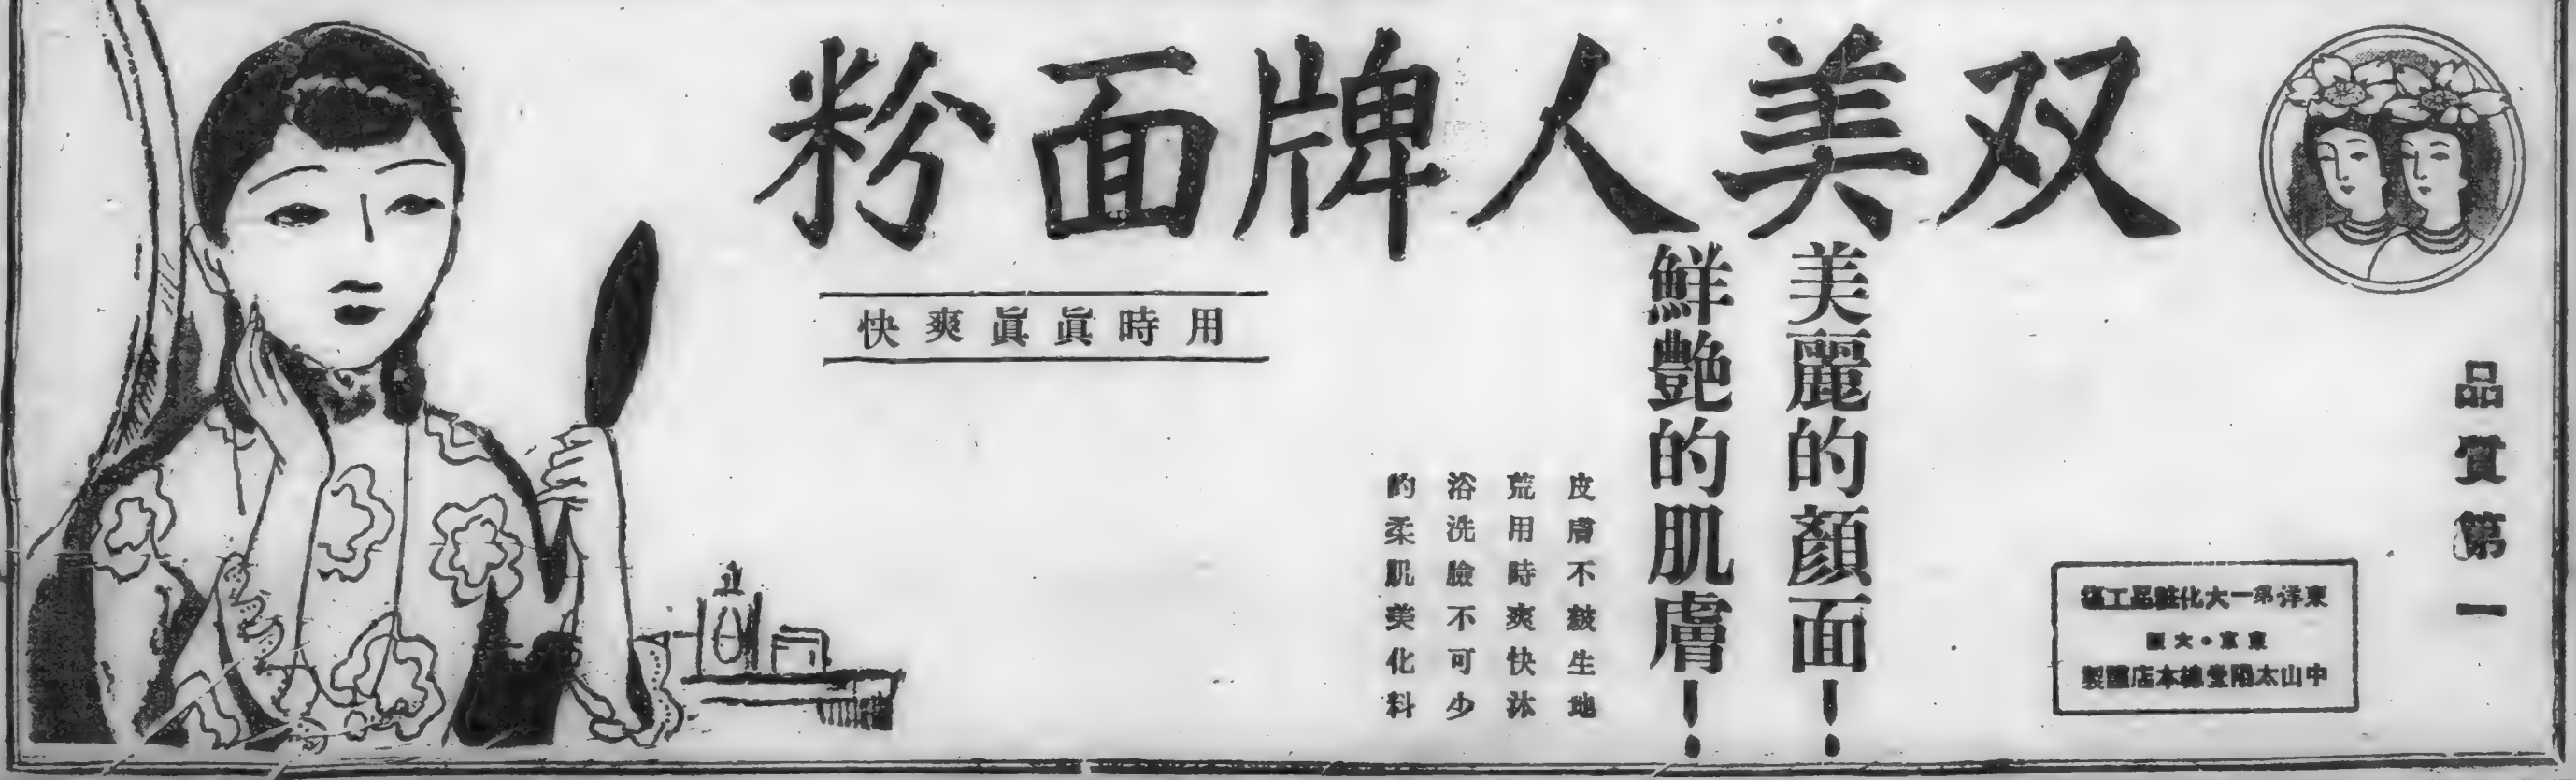 双美人牌面粉
品質第一
美麗的顏面!
鮮艶的肌膚!
用時眞眞爽快
皮膚不皴生地
荒用時爽快沐
浴洗臉不可少
的柔肌美化料
東洋第一大化粧品工塲
東京・大阪
中山太陽堂總本店謹製